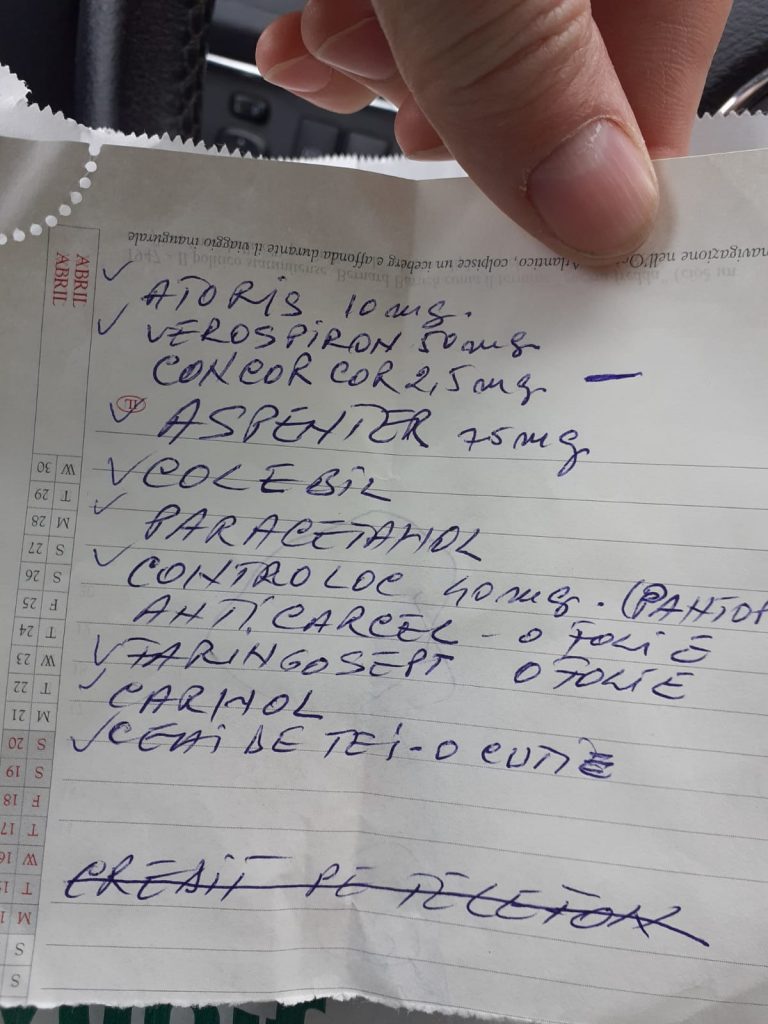 Atlantico, colpisce un iceberg e affonda durante il viaggio inaugurale
ABRIL
ABRIL
ATORIS 10 mg.
VEROSPIRON 50 mg
CONCOR COR 2,5 mg —
ASPENTER 75 mg
COLEBIL
PARACETAMOL
CONTROLOC 40 mg. (PANTOP
ANTICARCEL - O FOLIE
FARINGOSEPT O FOLIE
CARMOL
CEAI DE TEI - O CUTIE
CREDIT PE TELEFON
W 30
T 29
M 28
S 27
S 26
F 25
T 24
W 23
T 22
M 21
S 20
S 19
F 18
T 17
W 16
T
M
S
S